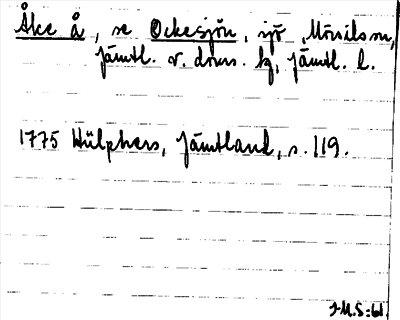 Åke å, se Ockesjön, sjö, Mörsils sn,
Jämtl. v. doms. hg, Jämtl. l.
1775 Hülphers, Jämtland, s. 119.
J.M.S:61.